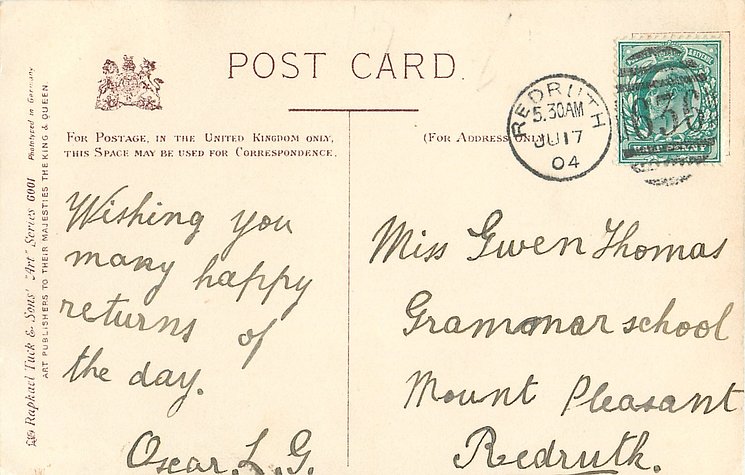 POST CARD.
FOR POSTAGE, IN THE UNITED KINGDOM ONLY,
THIS SPACE MAY BE USED FOR CORRESPONDENCE.
(FOR ADDRESS ONLY
REDRUTH
5.30AM
JU 17
04
636
HALF PENNY
Raphael Tuck & Sons' "Art" Series 6001 Phototyped in Germany
ART PUBLISHERS TO THEIR MAJESTIES THE KING & QUEEN.
Wishing you
many happy
returns of
the day.
Oscar. L. G.
Miss Gwen Thomas
Grammar school
Mount Pleasant
Redruth.